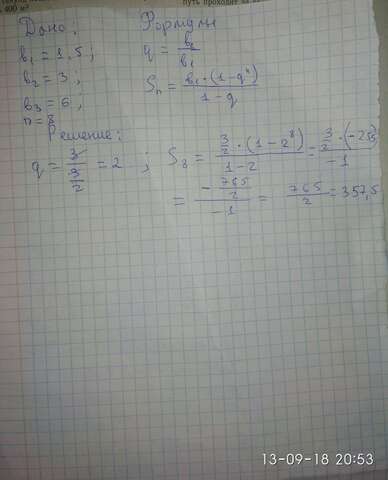 400 м²
путь проходит за
Дано:
b₁ = 1,5;
b₂ = 3;
b₃ = 6;
n = 8
Формулы
q = b₂/b₁
Sₙ = b₁·(1-qⁿ)/1-q
Решение:
q = 3/(3/2) = 2 ; S₈ = 3/2·(1-2⁸)/1-2 = 3/2·(-255)/-1
= -765/2/-1 = 765/2 = 357,5
13-09-18 20:53